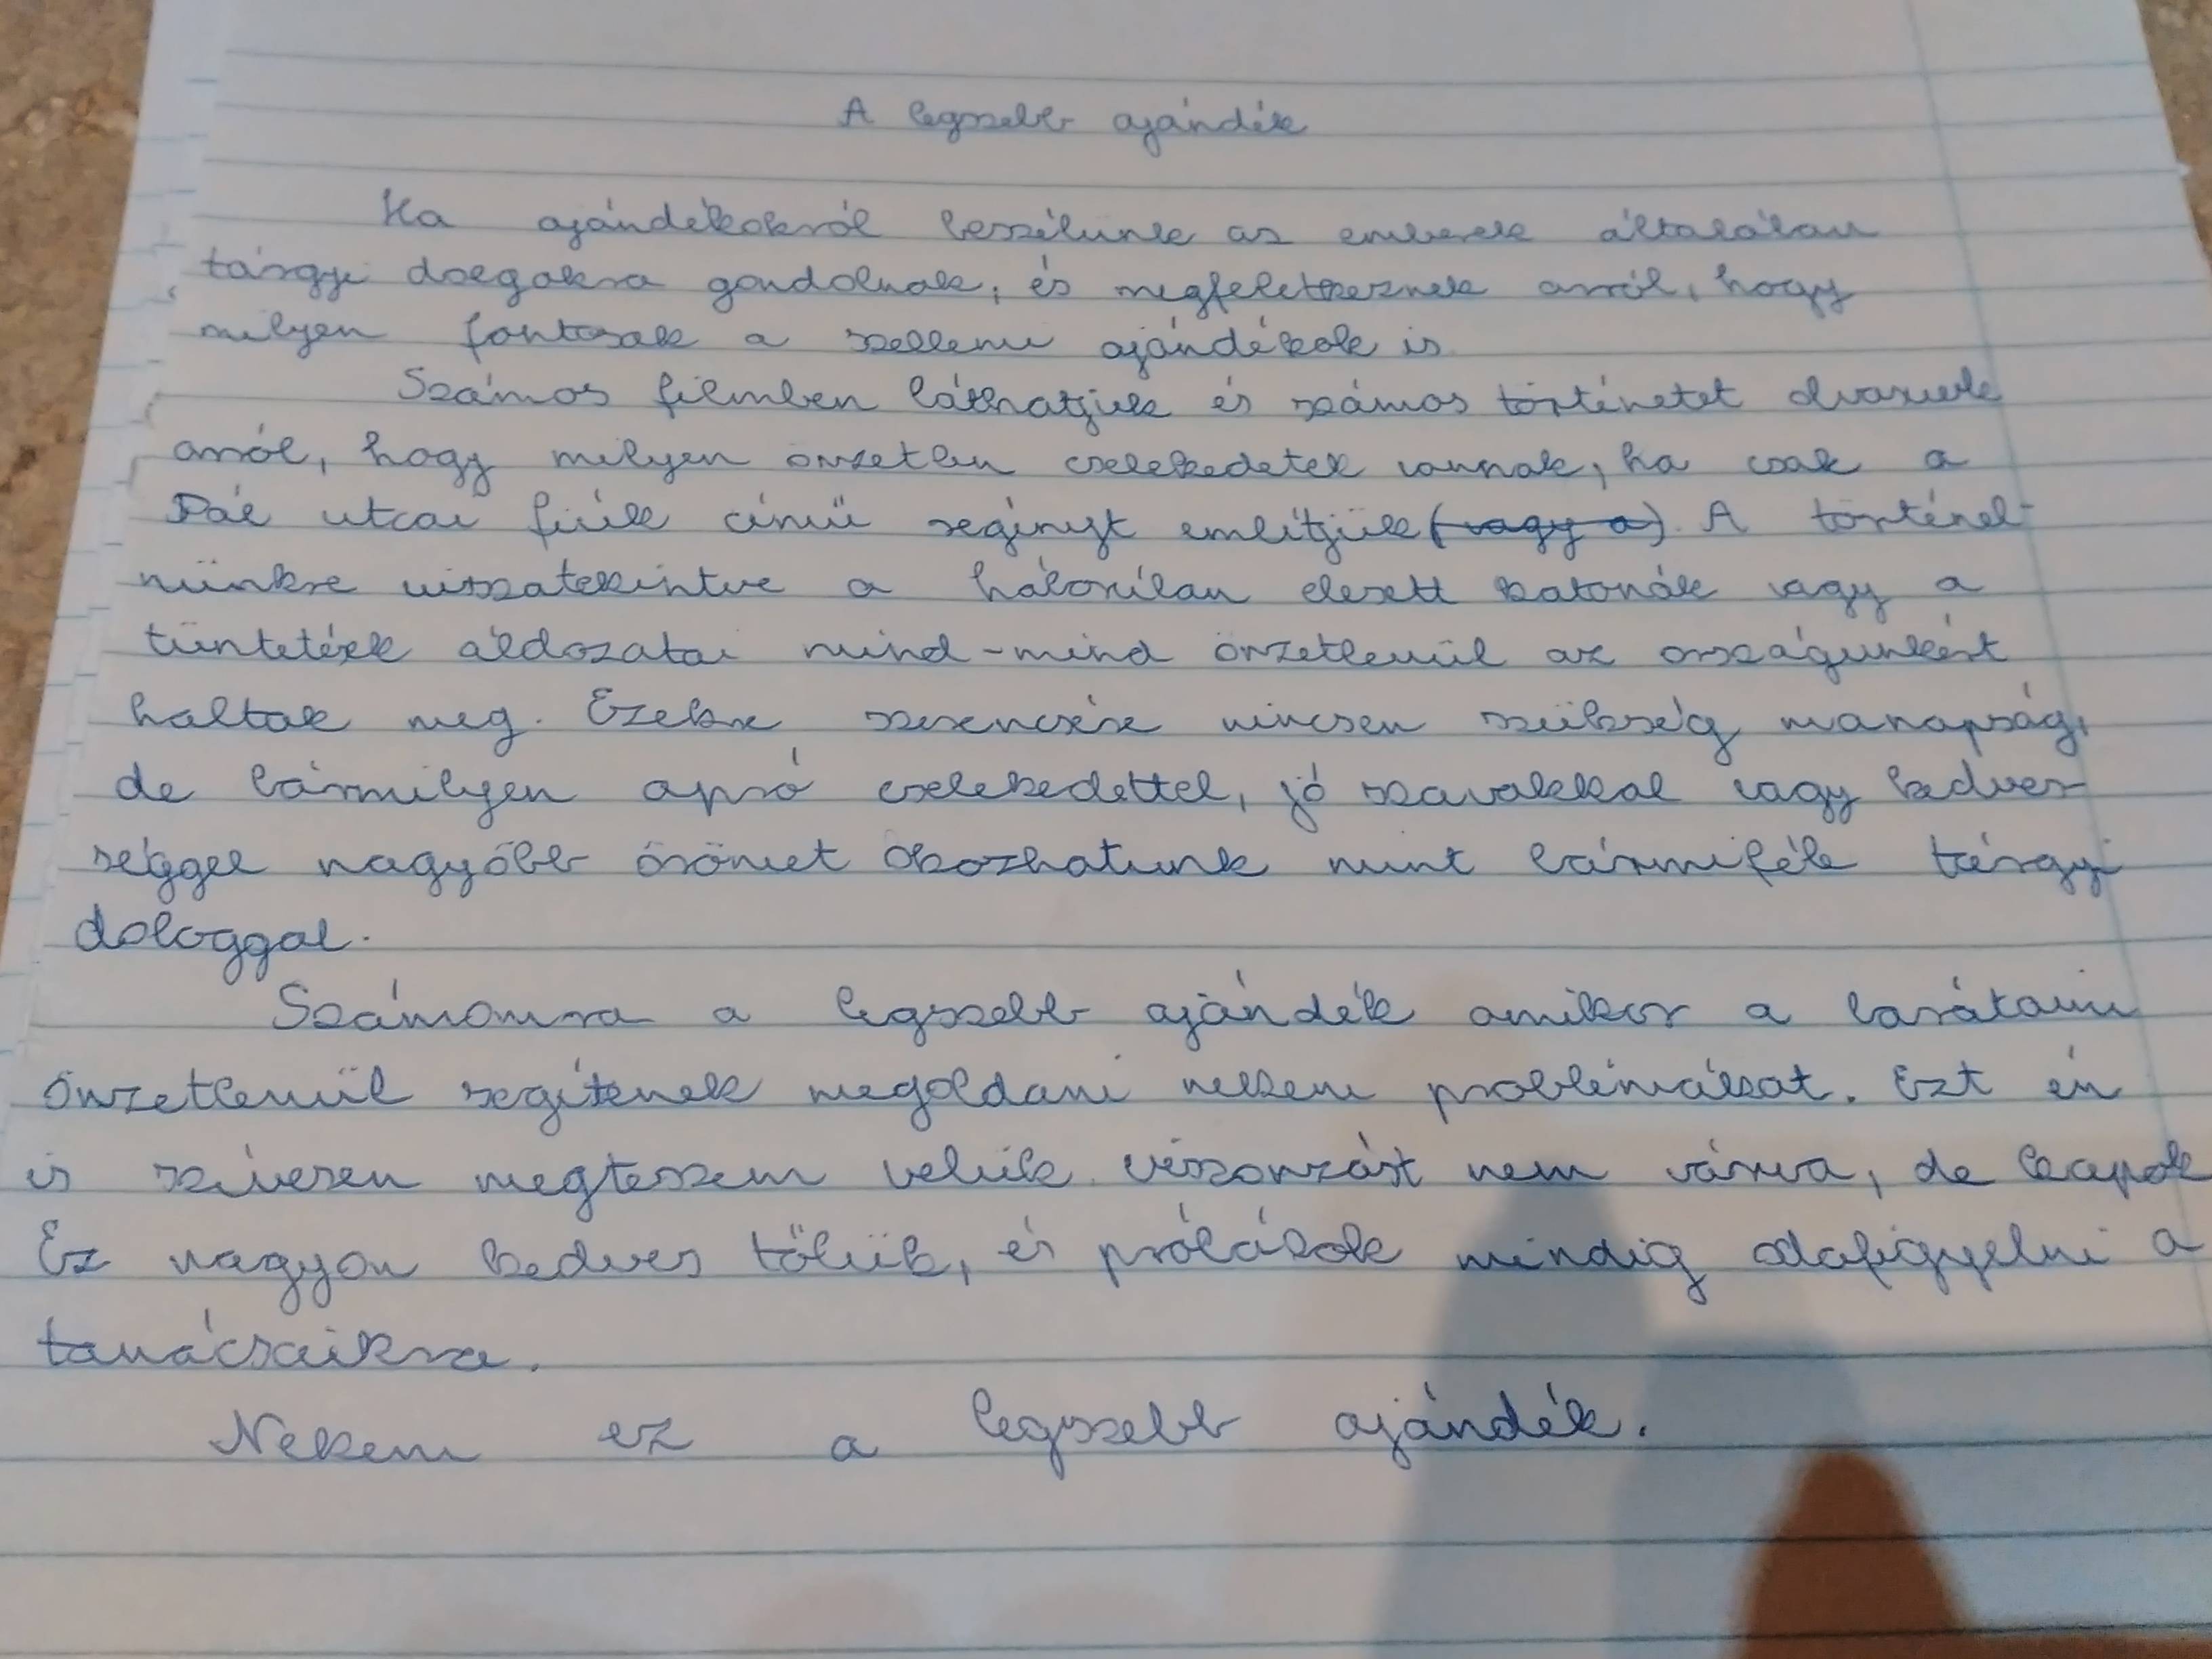 A legszebb ajándék
Ha ajándékokról beszélünk az emberek általában
tárgyi dolgokra gondolnak, és megfeletkeznek arról, hogy
milyen fontosak a szellemi ajándékok is.
Számos filmben láthatjuk és számos történetet olvasunk
arról, hogy milyen önzetlen cselekedetek vannak, ha csak a
Pál utcai fiúk című regényt említjük (vagy a). A történel-
münkre visszatekintve a háborúban elesett katonák vagy a
tüntetések áldozatai mind-mind önzetlenül az országunkért
haltak meg. Ezekre szerencsére nincsen szükség manapság,
de bármilyen apró cselekedettel, jó szavakkal vagy kedves-
séggel nagyobb örömet okozhatunk mint bármiféle tárgyi
dologgal.
Számomra a legszebb ajándék amikor a barátaim
önzetlenül segítenek megoldani nekem problémákat. Ezt én
is szívesen megteszem velük viszonzást nem várva, de kapok
Ez nagyon kedves tőlük, és próbálok mindig odafigyelni a
tanácsaikra.
Nekem ez a legszebb ajándék.